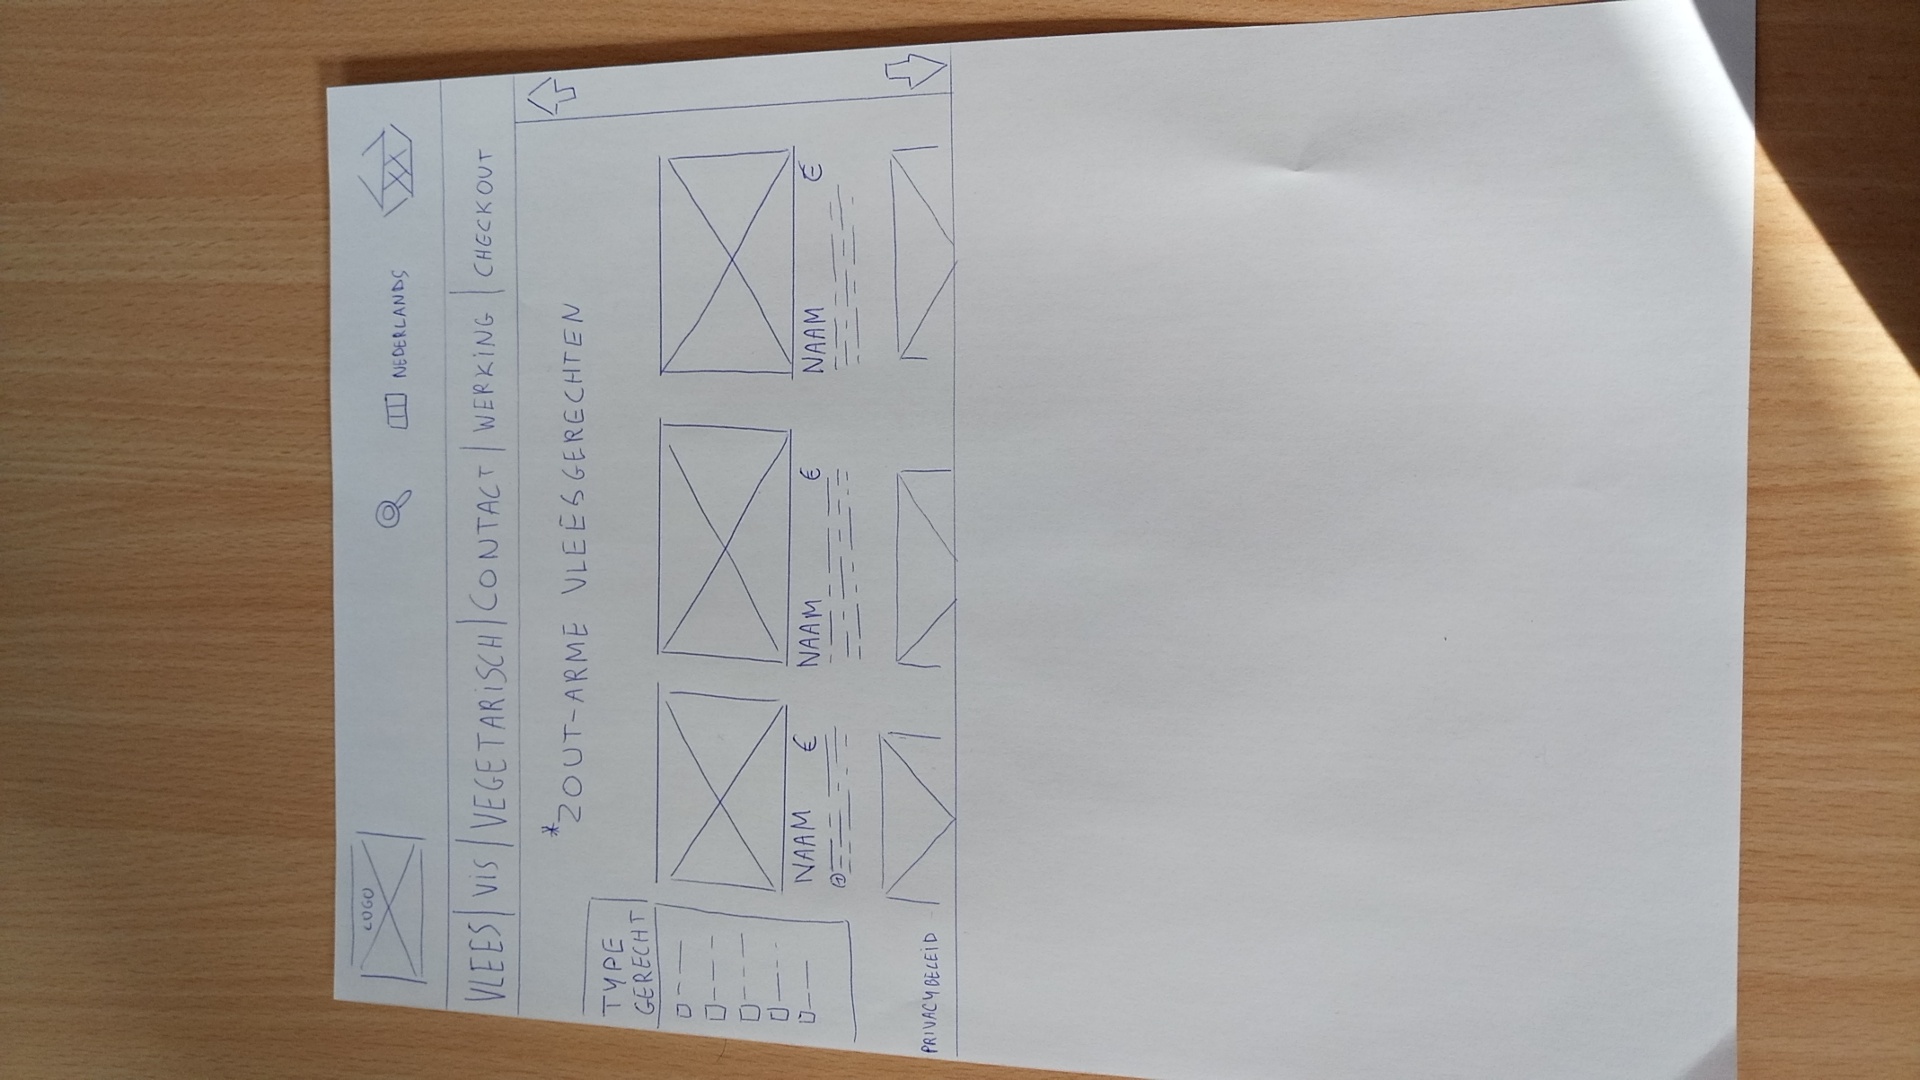 LOGO
NEDERLANDS
VLEES | VIS | VEGETARISCH | CONTACT | WERKING | CHECKOUT
*ZOUT-ARME VLEESGERECHTEN
TYPE
GERECHT
NAAM €
NAAM €
NAAM €
PRIVACYBELEID